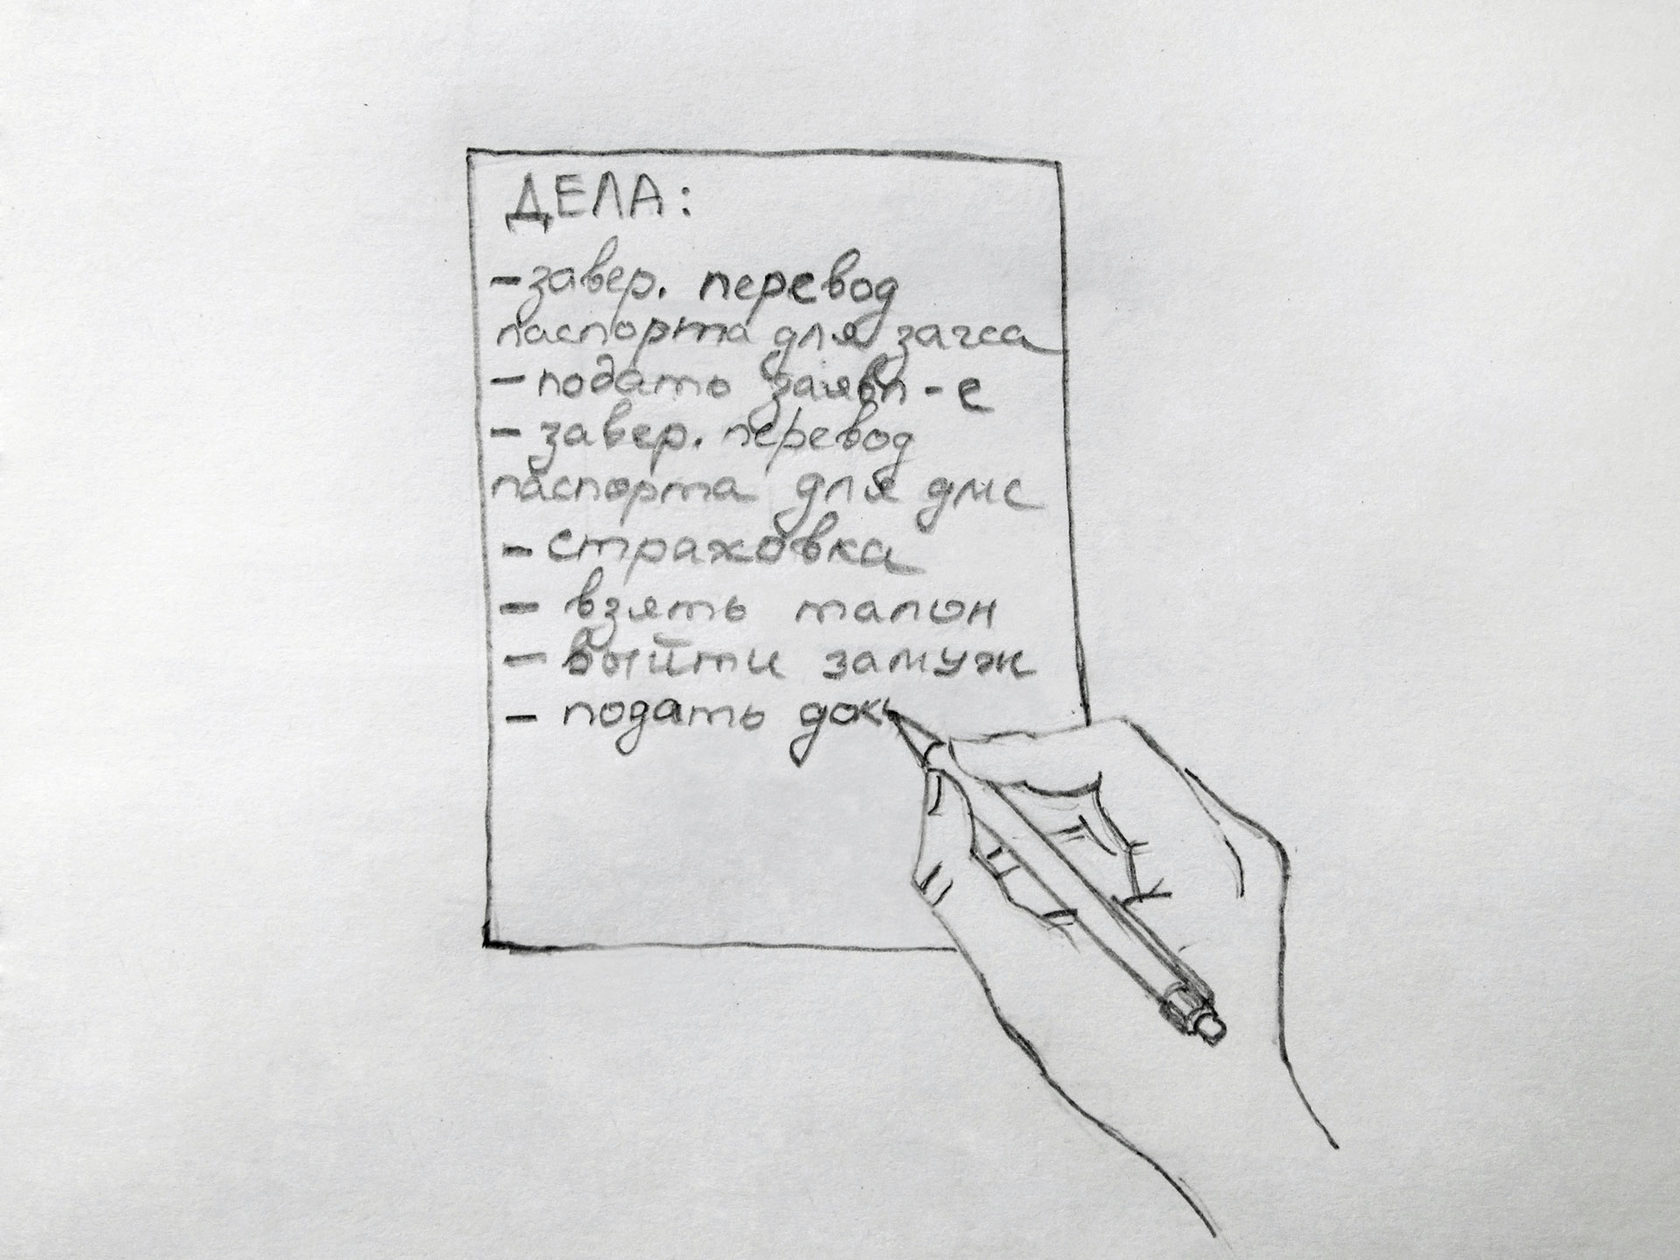 ДЕЛА:
- завер. перевод
паспорта для загса
- подать заявл-е
- завер. перевод
паспорта для дмс
- страховка
- взять талон
- выйти замуж
- подать док